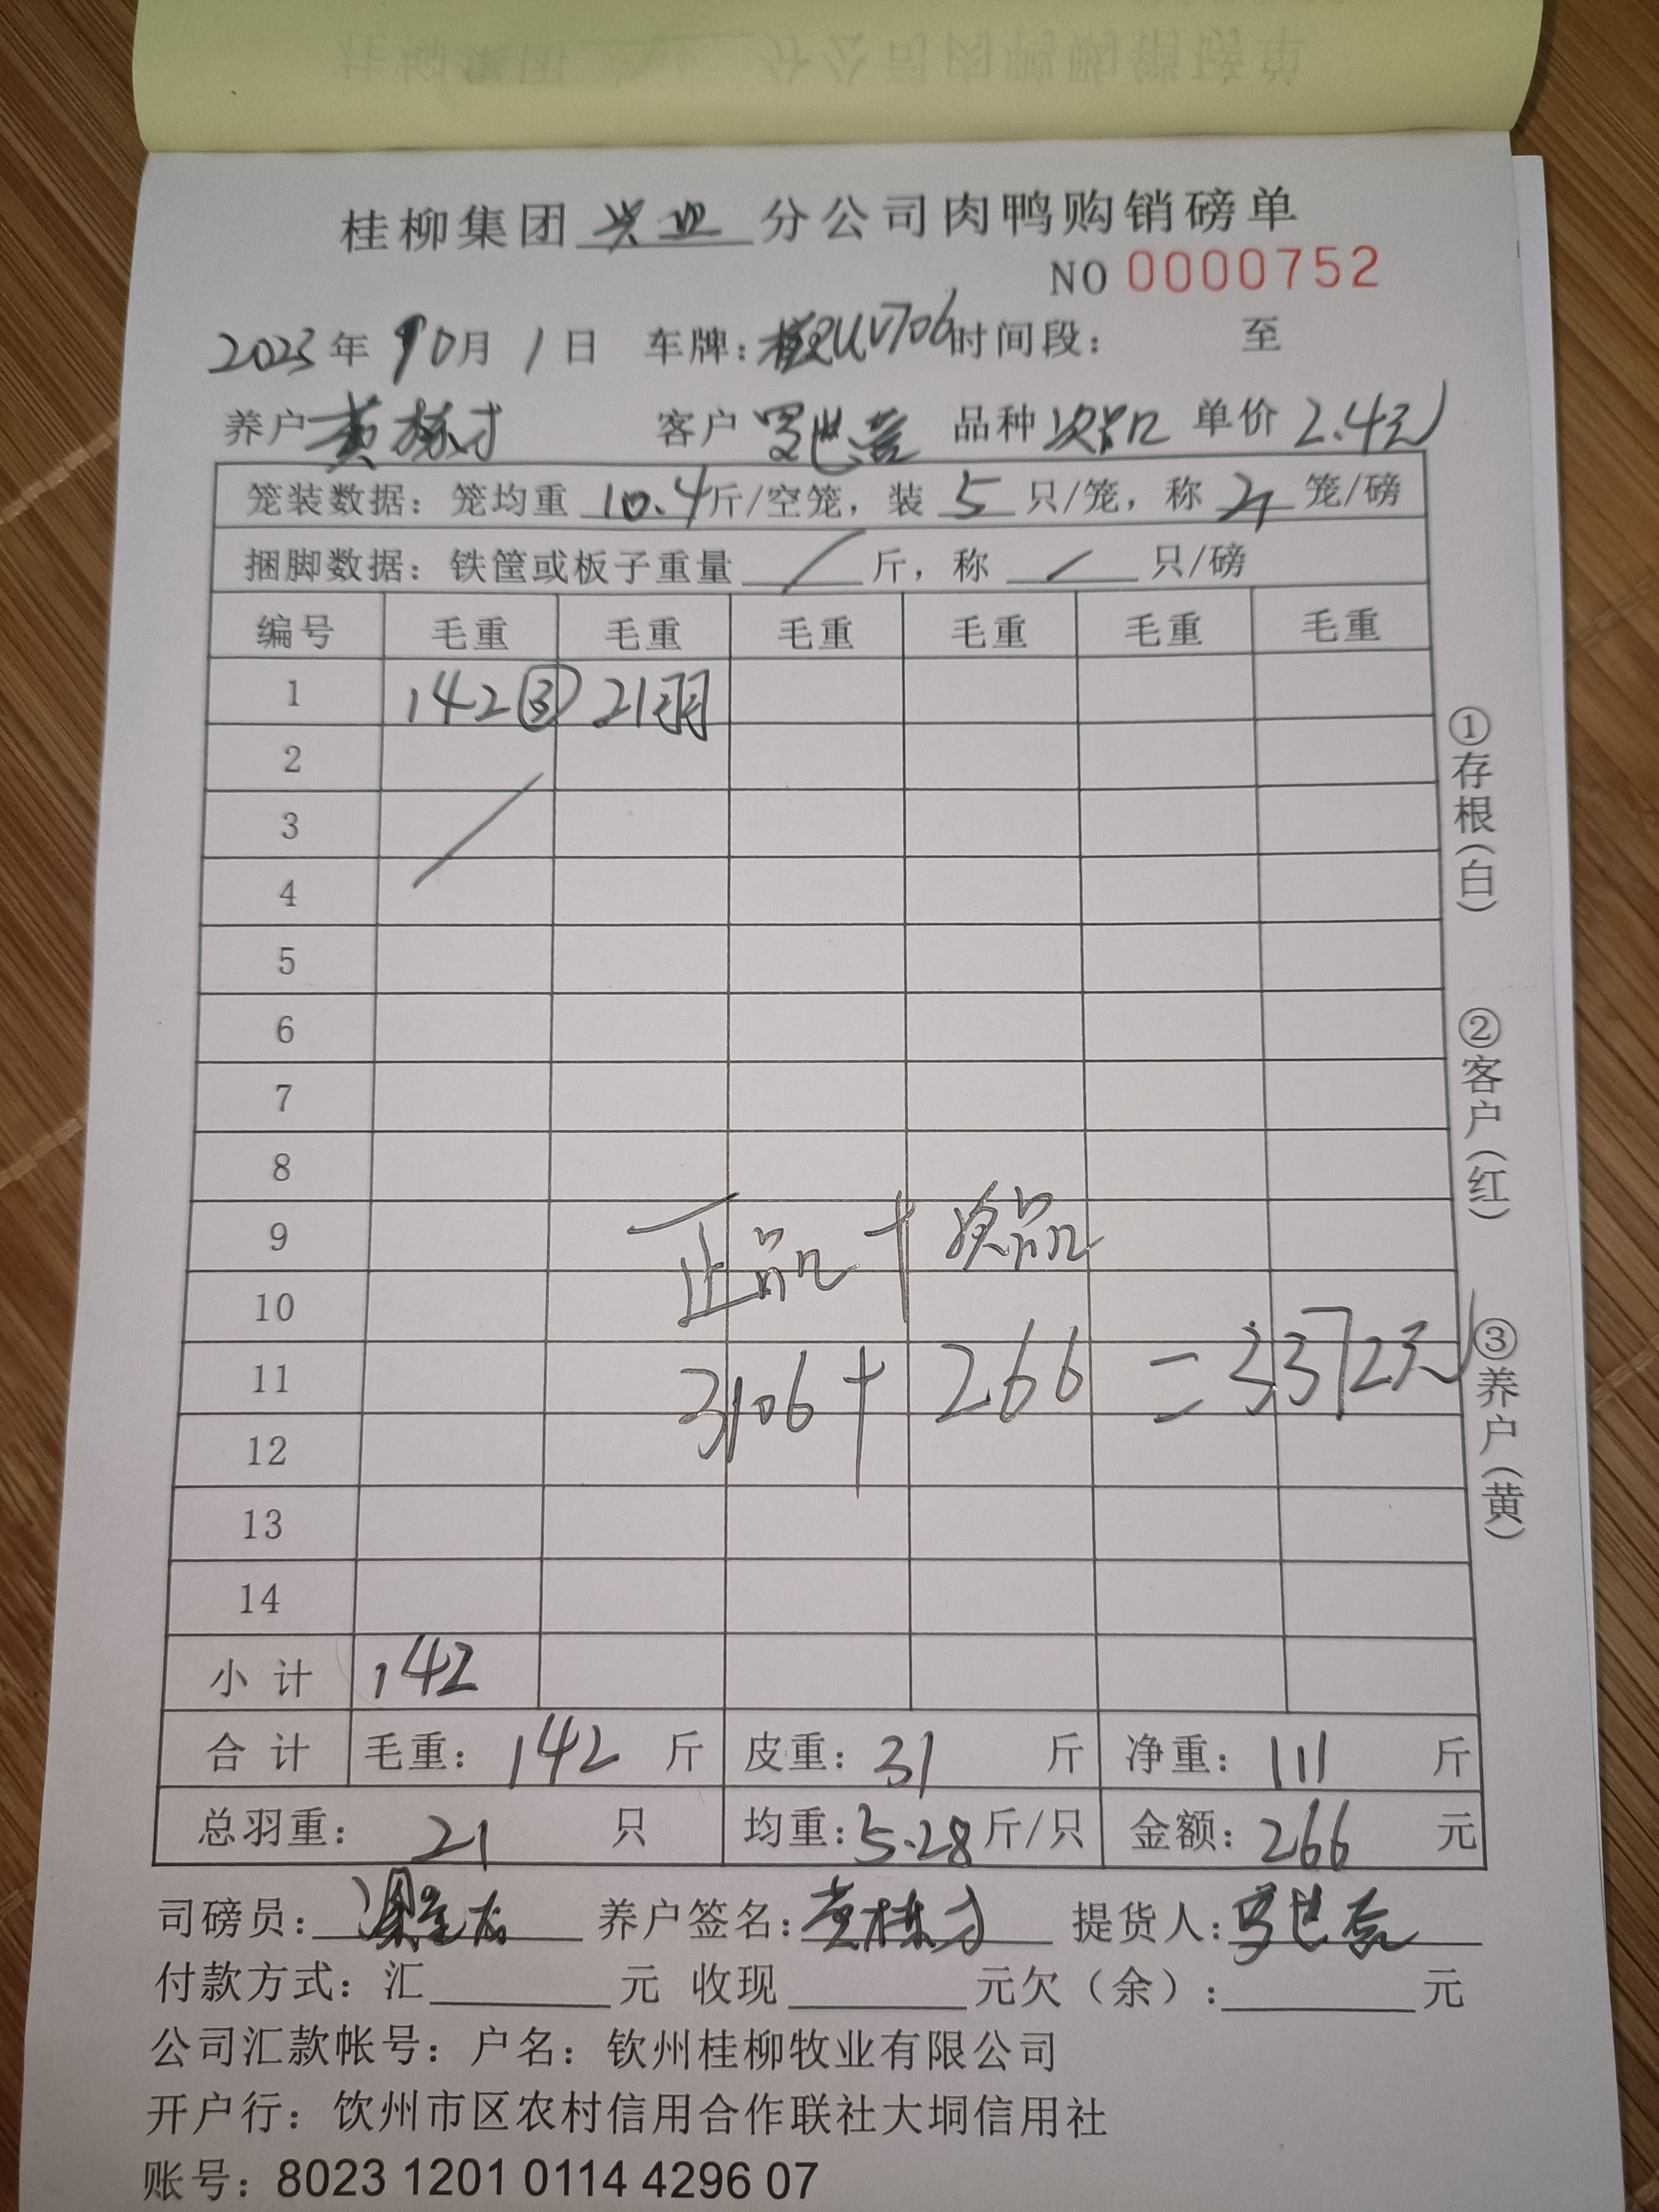 桂柳集团 兴业 分公司肉鸭购销磅单
NO 0000752
2023年 10月 1日 车牌: 时间段: 至
养户 黄栋才 客户 品种 次品 单价 2.4元
笼装数据: 笼均重 10.4斤/空笼, 装 5 只/笼, 称 笼/磅
捆脚数据: 铁筐或板子重量 / 斤, 称 / 只/磅
编号 毛重 毛重 毛重 毛重 毛重 毛重
1 142 ③ 21羽
2
3
4
5
6
7
8
9 正品 + 次品
10
11 3106 + 266 = 3372元
12
13
14
小计 142
合计 毛重: 142 斤 皮重: 31 斤 净重: 111 斤
总羽重: 21 只 均重: 5.28斤/只 金额: 266 元
司磅员: 养户签名: 黄栋才 提货人:
付款方式: 汇 元 收现 元欠(余): 元
公司汇款帐号: 户名: 钦州桂柳牧业有限公司
开户行: 钦州市区农村信用合作联社大垌信用社
账号: 8023 1201 0114 4296 07
①存根(白)
②客户(红)
③养户(黄)